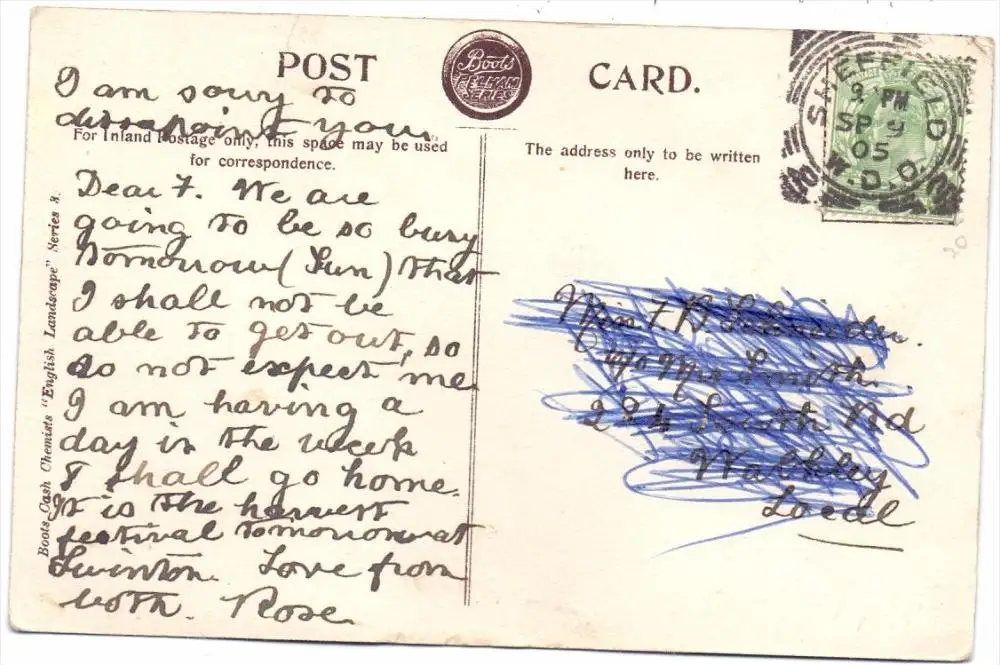 POST CARD.
Boots
PELHAM
SERIES
SHEFFIELD
9 PM
SP 9
05
W.D.O.
I am sorry to
dissapoint you.
For Inland Postage only, this space may be used
for correspondence.
The address only to be written
here.
Dear F. We are
going to be so busy
tomorrow (Sun) that
I shall not be
able to get out, so
do not expect me
I am having a
day in the week
I shall go home.
It is the harvest
festival tomorrow at
Swinton. Love from
both. Rose
Boots Cash Chemists "English Landscape" Series 8.
Miss F. B
c/o Mrs Smith.
224 South Rd
Walkley
Local
20